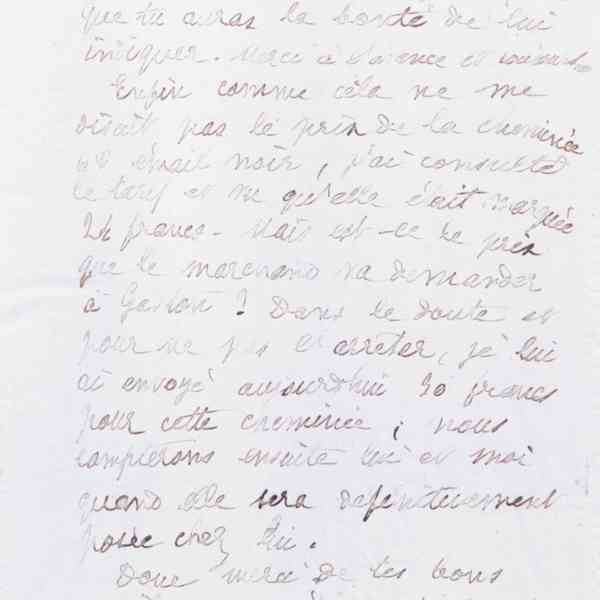 que tu auras la bonté de lui
indiquer. Merci à d'avance et
Enfin comme cela ne me
disait pas le prix de la cheminée
émail noir, j'ai consulté
le tarif et vu qu'elle était marquée
24 francs - Mais est-ce le prix
que le marchand va demander
à Gaston ? Dans le doute et
pour ne pas arrêter, je lui
ai envoyé aujourd'hui 30 francs
pour cette cheminée ; nous
compterons ensuite lui et moi
quand elle sera définitivement
posée chez lui.
Donc merci de tes bons